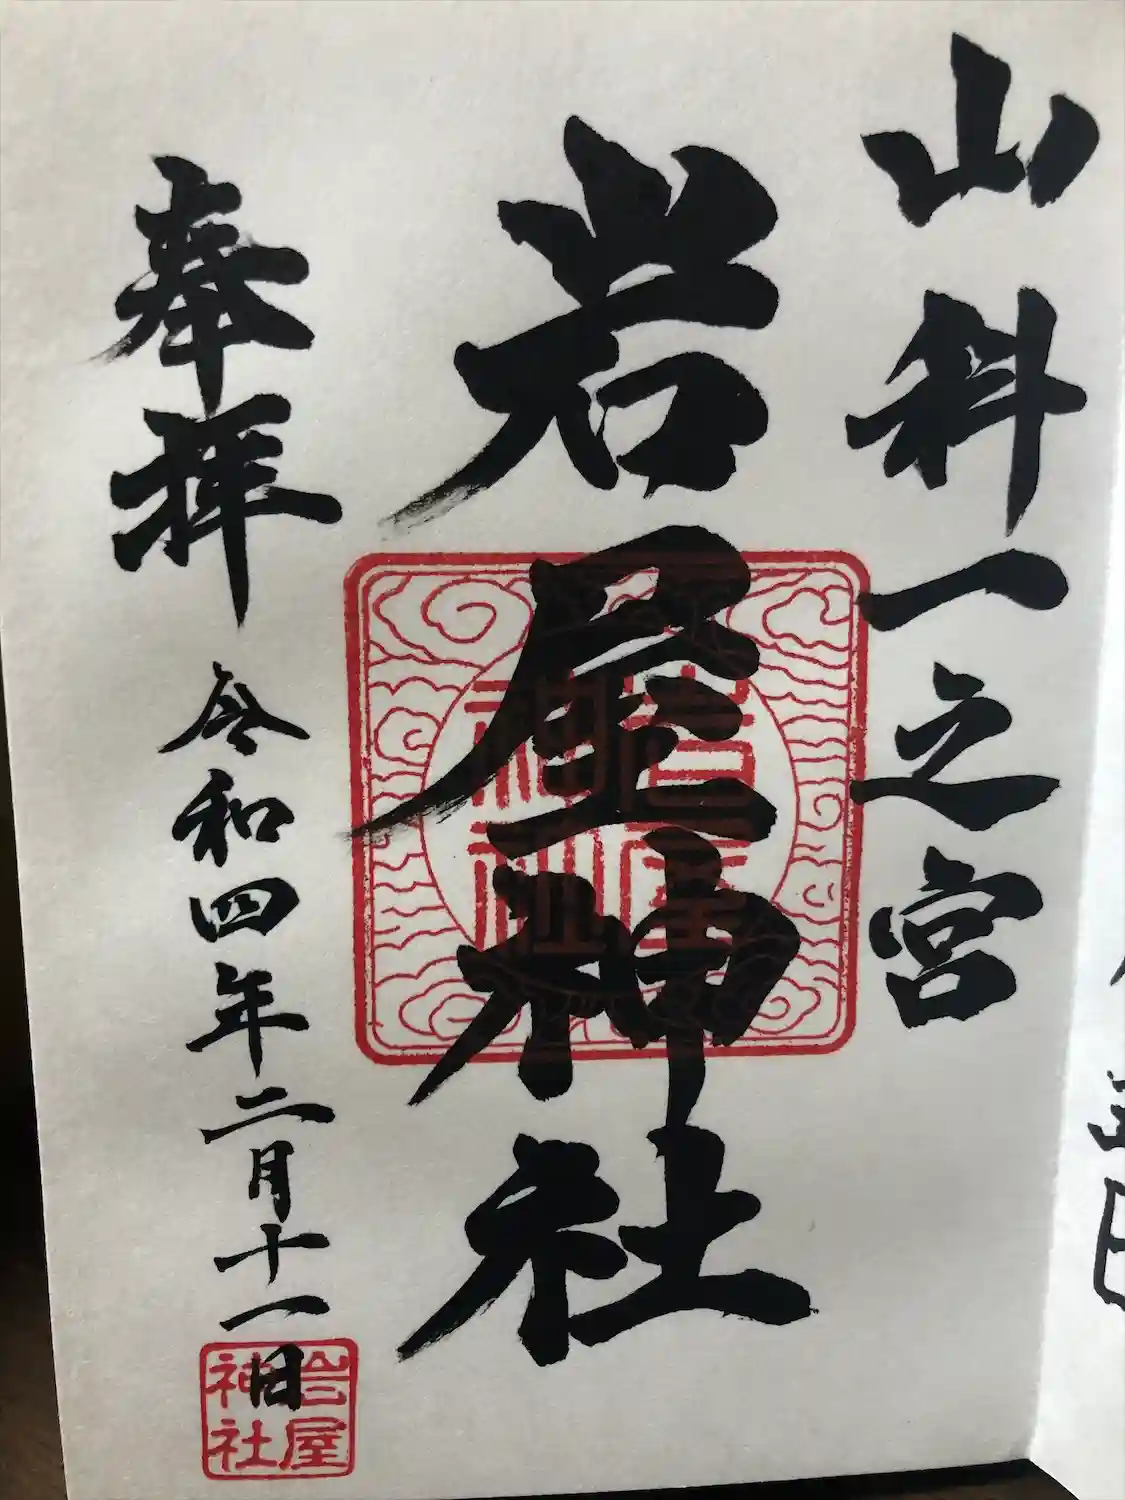 山科一之宮
岩屋神社
奉拝
令和四年二月十一日
岩屋
神社
岩屋
神社